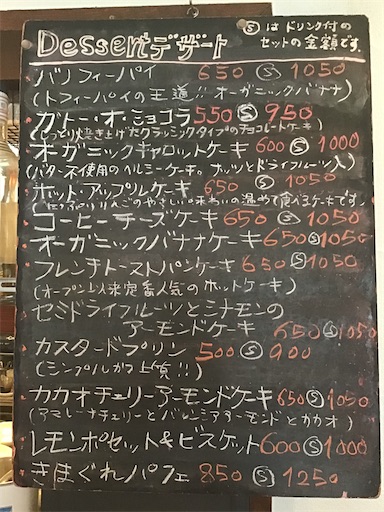 Dessertデザート
Ⓢはドリンク付の
セットの金額です。
バノフィーパイ 650 Ⓢ 1050
(トフィーパイの王道!! オーガニックバナナ)
ガトー・オ・ショコラ 550 Ⓢ 950
(しっとり焼き上げたクラシックタイプのチョコレートケーキ)
オーガニックキャロットケーキ 600 Ⓢ 1000
(バター不使用のヘルシーケーキ。ナッツとドライフルーツ入)
ホットアップルケーキ 650 Ⓢ 1050
(たっぷりりんごのやさしい味わいの温めて食べるケーキです)
コーヒーチーズケーキ 650 Ⓢ 1050
オーガニックバナナケーキ 650 Ⓢ 1050
フレンチトーストパンケーキ 650 Ⓢ 1050
(オープン以来定番人気のホットケーキ)
セミドライフルーツとシナモンの
アーモンドケーキ 650 Ⓢ 1050
カスタードプリン 500 Ⓢ 900
(シンプルかつ上質!!)
カカオチェリーアーモンドケーキ 650 Ⓢ 1050
(アマレーナチェリーとバレンシアアーモンドとカカオ)
レモンポセット&ビスケット 600 Ⓢ 1000
きまぐれパフェ 850 Ⓢ 1250